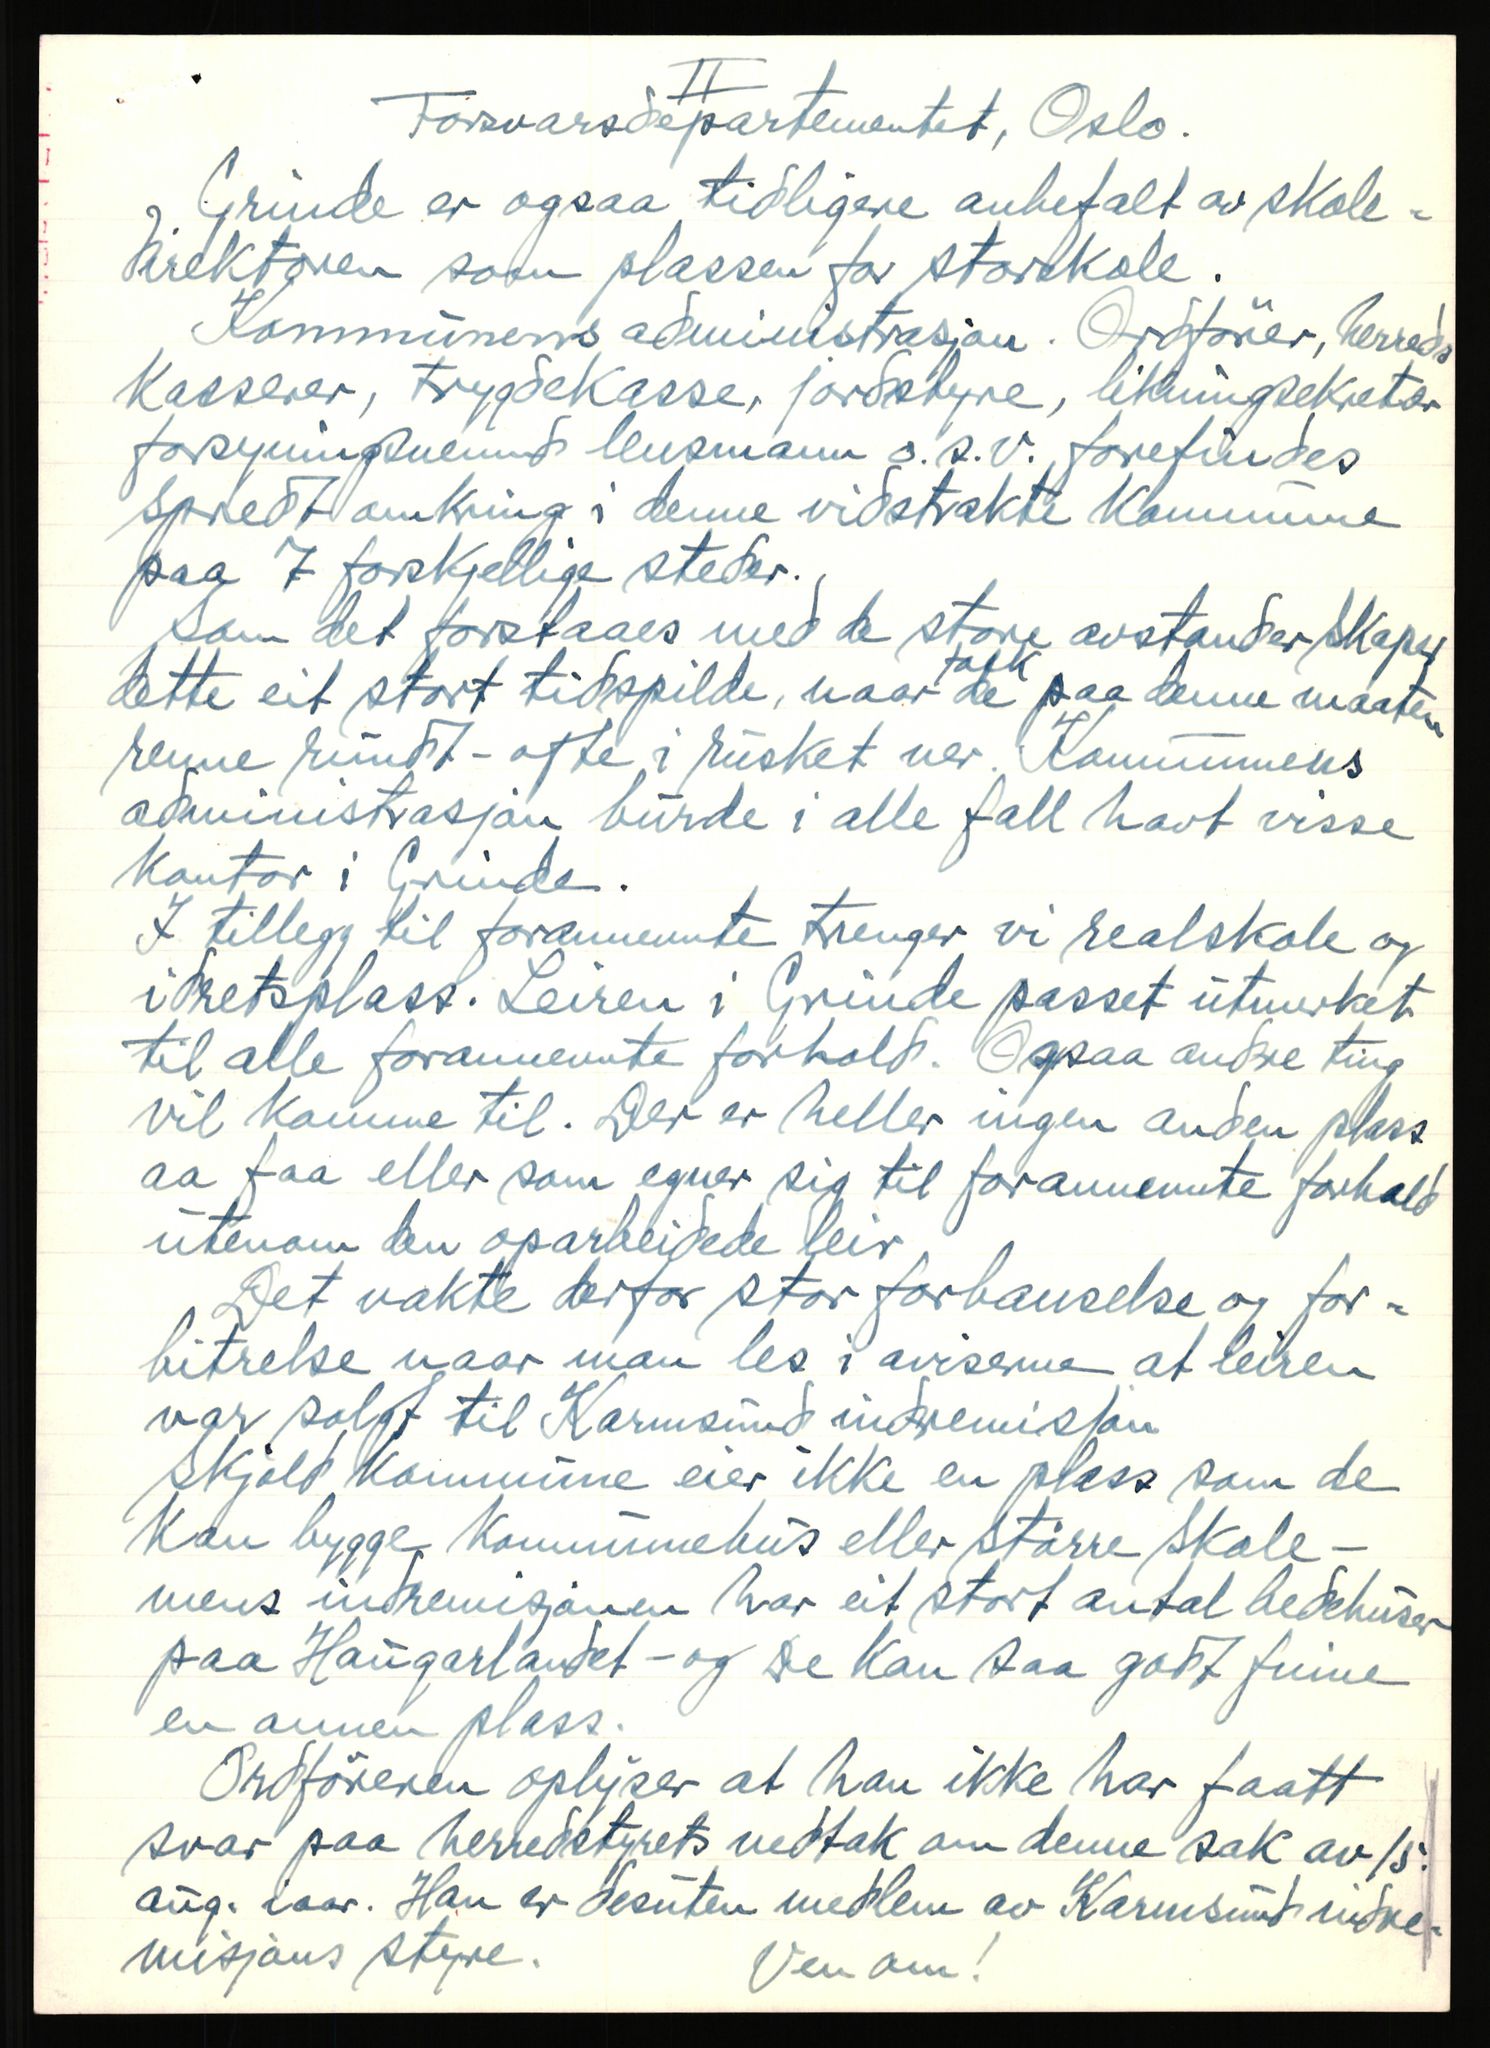 II
Forsvarsdepartementet, Oslo.
Grinde er ogsaa tidligere anbefalt av skole-
direktøren som plassen for storskole.
Kommunens administrasjon. Ordförer, herreds
kasserer, trygdekasse, jordstyre, likningsekretær
forsyningsnemnd lensmann o.s.v. forefindes
spredt omkring i denne vidstrakte kommune
paa 7 forskjellige steder.
Som det forstaaes med de store avstander skaper
dette eit stort tidspilde, naar folk de paa denne maaten
renne rundt - ofte i rusket ver. Kommunens
administrasjon burde i alle fall havt visse
kontor i Grinde.
I tillegg til forannemnte trenger vi realskole og
idretsplass. Leiren i Grinde passet utmerket
til alle forannemnte forhold. Ogsaa andre ting
vil komme til. Der er heller ingen anden plass
aa faa eller som egner sig til forannemnte forhold
utenom den oparbeidede leir
Det vakte derfor stor forbauselse og for-
bitrelse naar man les i aviserne at leiren
var solgt til Karmsund indremisjon
Skjold kommune eier ikke en plass som de
kan bygge kommunehus eller större skole -
mens indremisjonen har eit stort antal bedehuser
paa Haugarlandet - og de kan saa godt finne
en annen plass.
Ordföreren oplyser at han ikke har faatt
svar paa herredstyrets vedtak om denne sak av 15.
aug. iaar. Han er desuten medlem av Karmsund indre-
misjons styre.
Ven om!